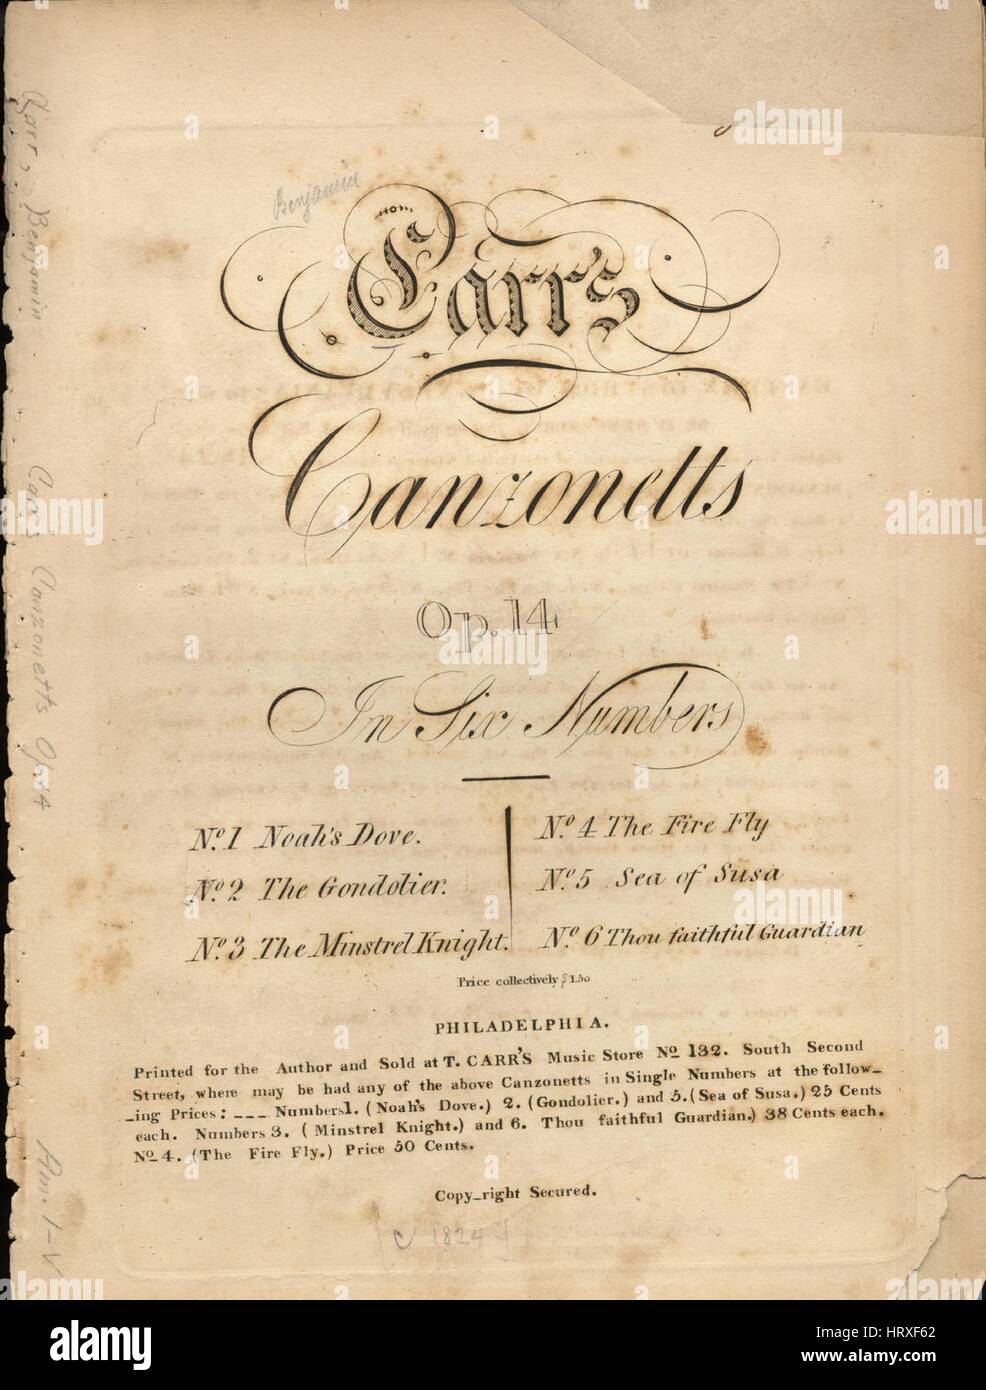 Benjamin
Carr's
Canzonetts
Op. 14
In Six Numbers
No. 1 Noah's Dove.
No. 2 The Gondolier.
No. 3 The Minstrel Knight.
No. 4 The Fire Fly
No. 5 Sea of Susa
No. 6 Thou faithful Guardian
Price collectively $1.50
PHILADELPHIA.
Printed for the Author and Sold at T. CARR'S Music Store No. 132. South Second
Street, where may be had any of the above Canzonetts in Single Numbers at the follow_
_ing Prices: ___ Numbers 1. (Noah's Dove.) 2. (Gondolier.) and 5. (Sea of Susa.) 25 Cents
each. Numbers 3. (Minstrel Knight.) and 6. Thou faithful Guardian.) 38 Cents each.
No. 4. (The Fire Fly.) Price 50 Cents.
Copy_right Secured.
[c 1824]
Carr, Benjamin Carr's Canzonetts Op. 14 Am. 1-V
alamy stock photo
HRXF62
www.alamy.com